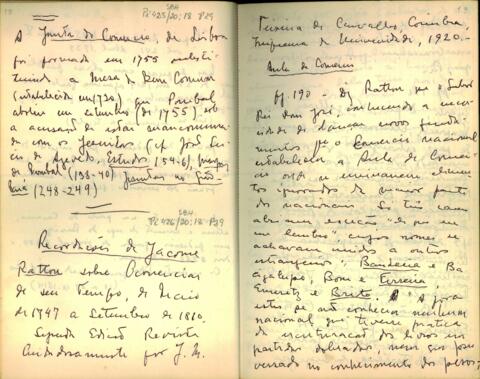 SBH
Pi 425/20:18 P29
A Junta do Comercio, de Lisboa
foi formada em 1755 substi
tuindo, a Mesa do Bem Comum
(estabelecida em 1720) que Pombal
abolira em setembro (de 1755) sob
a acusação de estar
da com os Jesuitas (cf José Lu-
cio de Azevedo, Estudos 154-6), Marquez
de Pombal (138-40)
(248-249)
SBH
Pi 426/20:18 P29
Recordações de Jacome
Ratton sobre Ocorrencias
de seu Tempo, de Maio
de 1747 a Setembro de 1810.
Segunda Edição Revista
Cuidadosamente por J. M.
Teixeira de Carvalho, Coimbra,
Imprensa da Universidade, 1920.
Aula de Comercio
pg. 190 - Diz Ratton, que o Senhor
Rei Dom José, conhecendo a neces
sidade de lançar novos funda
mentos pa o Comercio nacional
estabeleceu a Aula de Comer-
cio onde se ensinavam elemen
tos ignorados da maior parte
dos nacionais. Só tres casas
abriram exceção "de que me
me lembro", cujos nomes se
achavam unidos a outros
estrangeiros: Bandeira e Ba
cigalupo, Bom e Ferreira,
e Brito. A fora
estes se não conhecia nenhum
nacional que tivesse pratica
da escrituração dos livros em
partidas dobradas, nem que fosse
versado no conhecimento dos pesos,